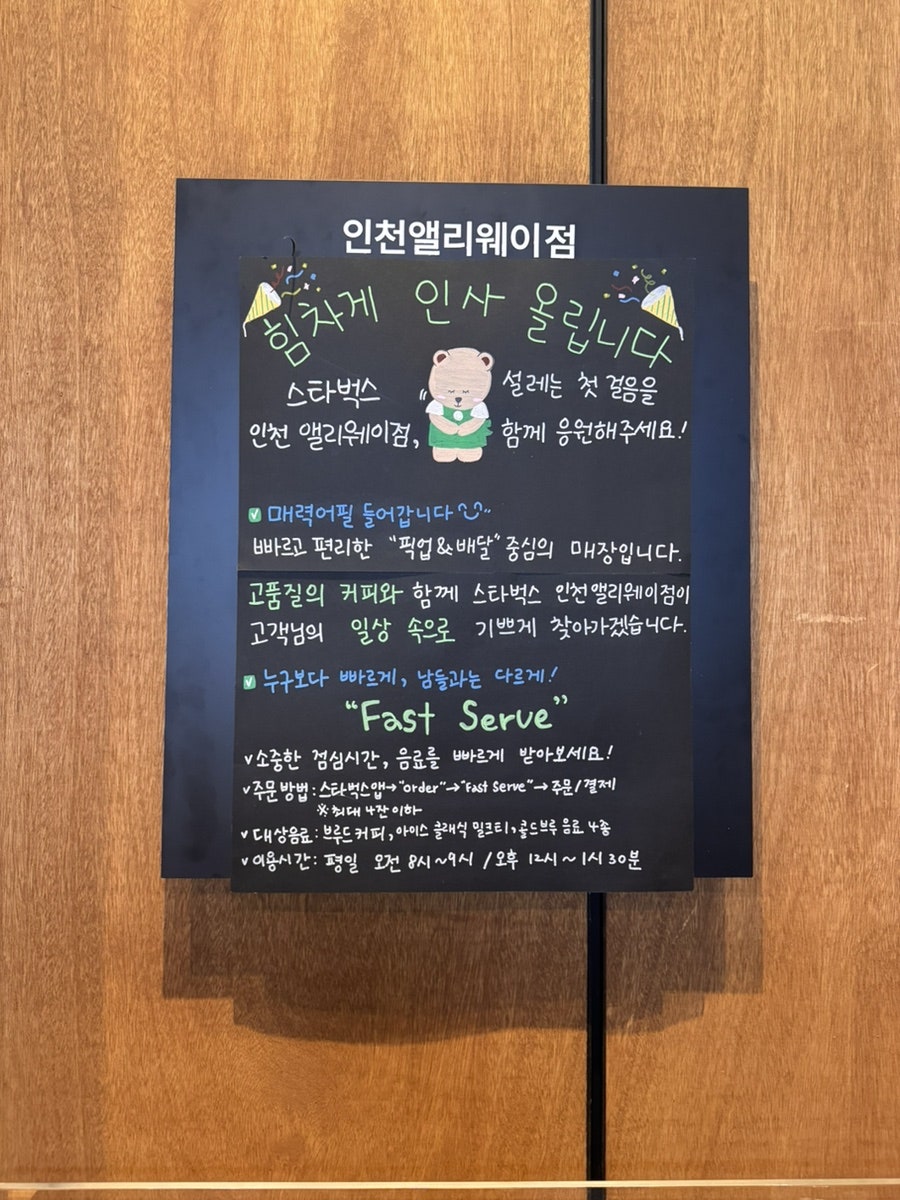 인천앨리웨이점
힘차게 인사 올립니다
스타벅스
인천 앨리웨이점,
설레는 첫 걸음을
함께 응원해주세요!
매력어필 들어갑니다
빠르고 편리한 "픽업&배달" 중심의 매장입니다.
고품질의 커피와 함께 스타벅스 인천앨리웨이점이
고객님의 일상 속으로 기쁘게 찾아가겠습니다.
누구보다 빠르게, 남들과는 다르게!
"Fast Serve"
v 소중한 점심시간, 음료를 빠르게 받아보세요!
v 주문방법 : 스타벅스앱→"order"→"Fast Serve"→주문/결제
※ 최대 4잔 이하
v 대상음료 : 브루드 커피, 아이스 클래식 밀크티, 콜드브루 음료 4종
v 이용시간 : 평일 오전 8시~9시 / 오후 12시~1시 30분